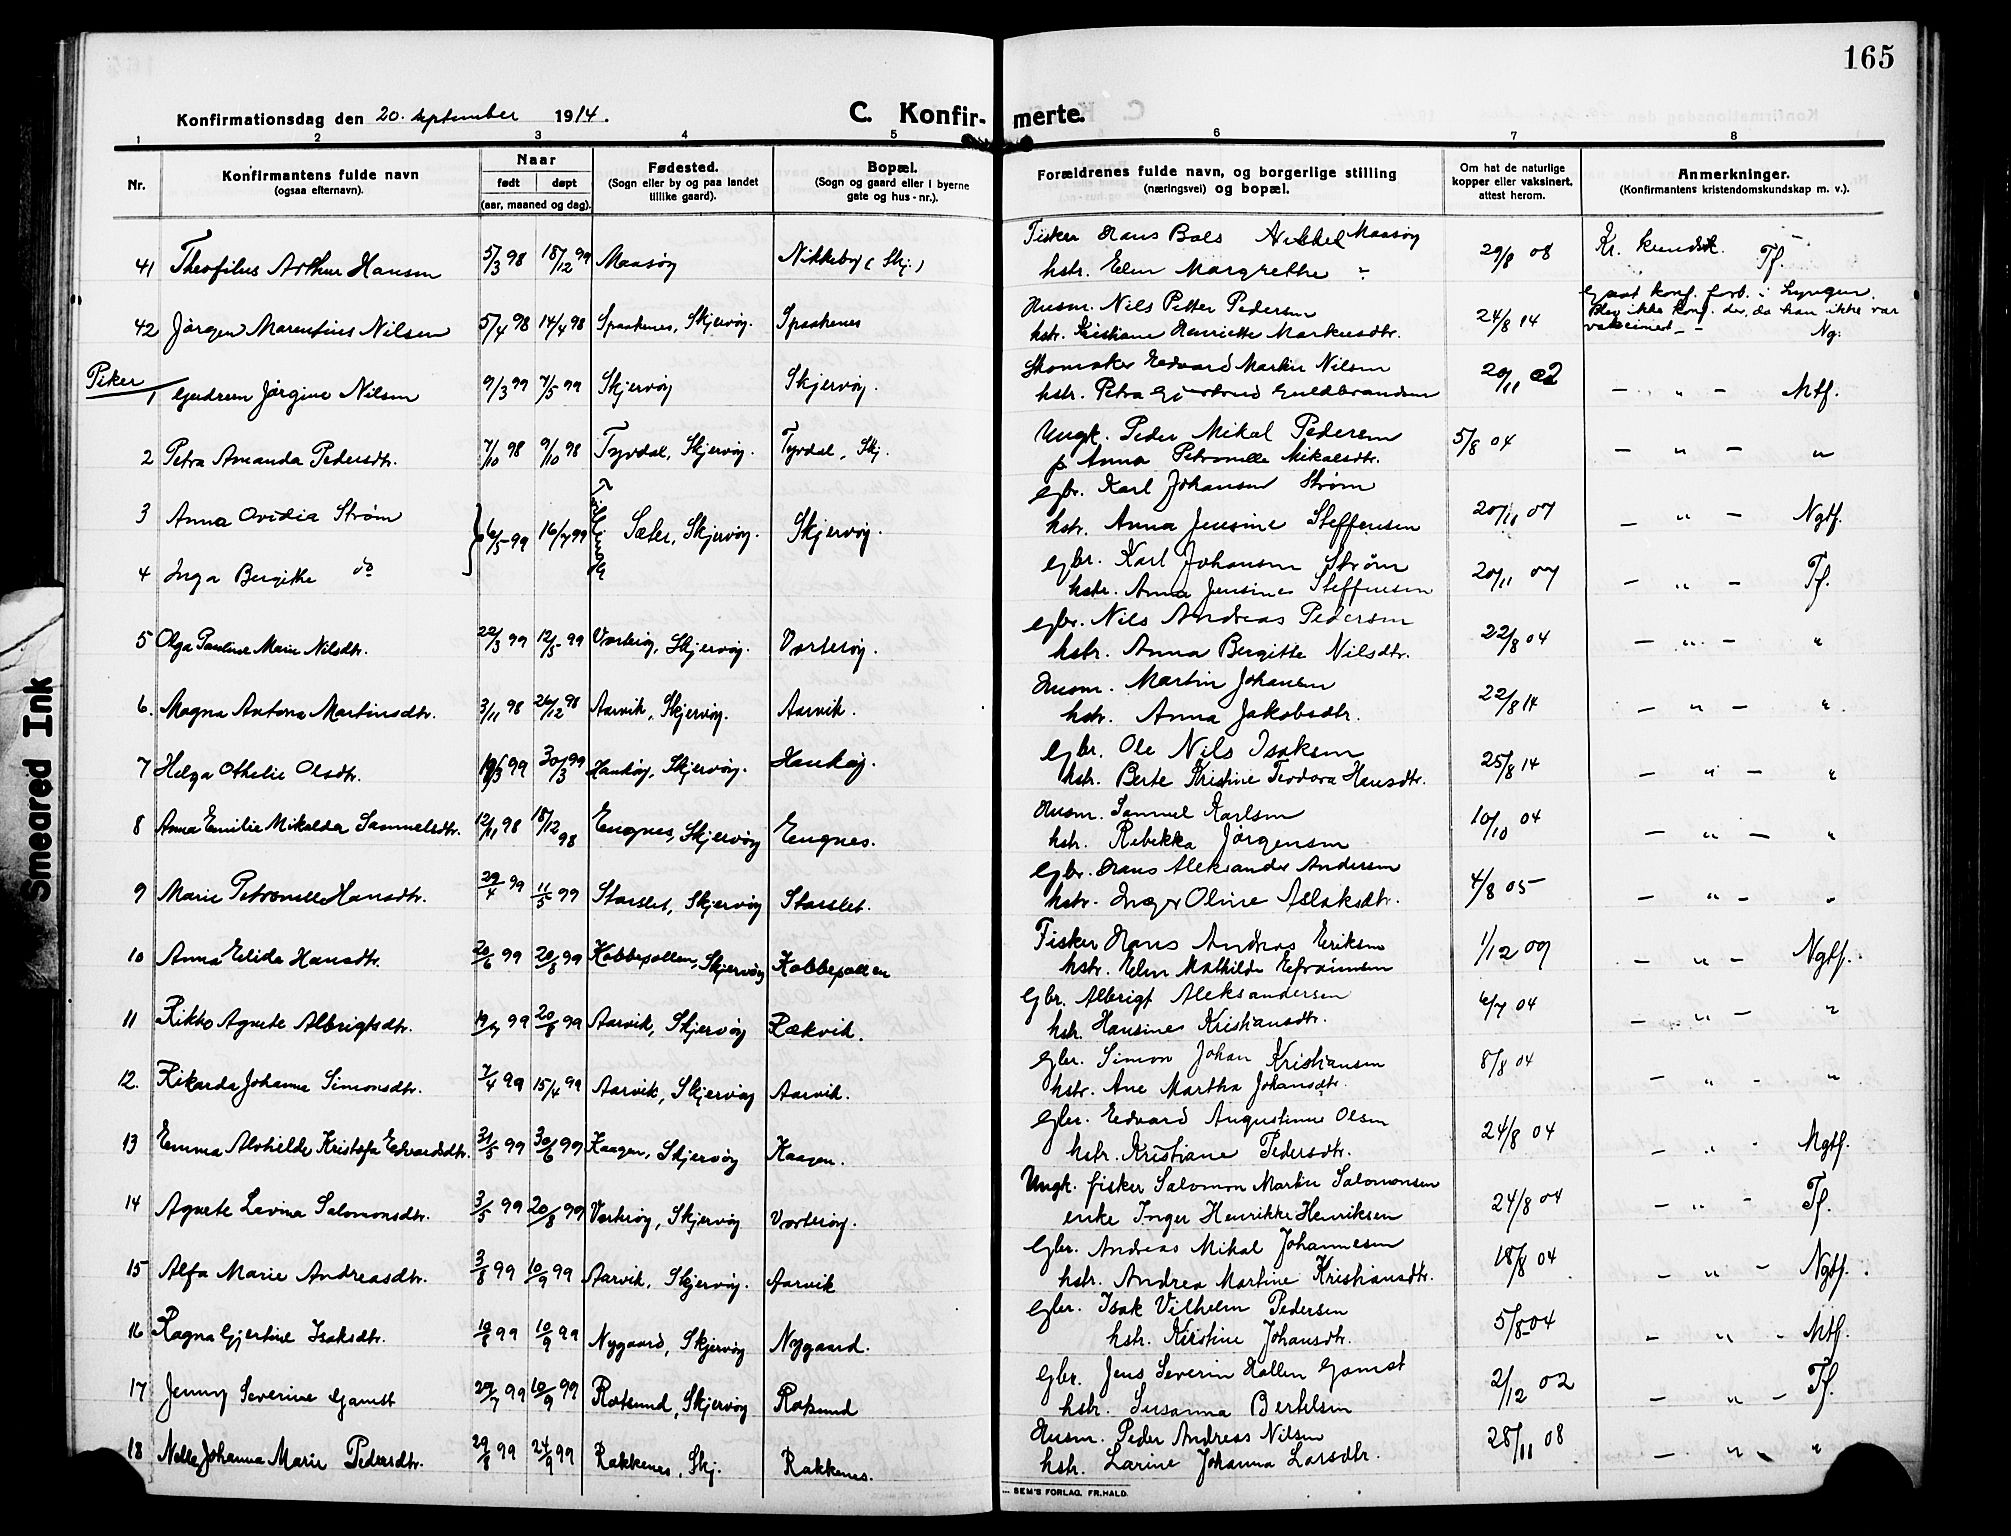 165
Konfirmationsdag den 20. september 1914.
C. Konfir- merte.
1 2 3 4 5 6 7 8
Nr.
Konfirmantens fulde navn
(ogsaa efternavn).
Naar
født døpt
(aar, maaned og dag).
Fødested.
(Sogn eller by og paa landet
tillike gaard).
Bopæl.
(Sogn og gaard eller i byerne
gate og hus-nr.).
Forældrenes fulde navn, og borgerlige stilling
(næringsvei) og bopæl.
Om hat de naturlige
kopper eller vaksinert,
attest herom.
Anmerkninger.
(Konfirmantens kristendomskundskap m. v.).
Fisker Hans Bals Maasøy
41 Theofilus Arthur Hansen 5/3 98 18/12 99 Maasøy Nikkeby (Skj.) hstr. Elen Margrethe 29/8 08 Kr. kundsk. Tf.
Husm. Nils Petter Pedersen Gaat konf. forb. i Lyngen.
42 Jørgen Marentius Nilsen 5/4 98 14/4 98 Spaakenes, Skjervøy. Spaakenes hstr. Kristiane Henriette Markusdtr. 24/8 14 Blev ikke konf. der, da han ikke var
vaksinert – Ng.
Piker
Skomaker Edvard Martin Nilsen
1 Gudrun Jørgine Nilsen 9/3 99 7/5 99 Skjervøy Skjervøy. hstr. Petra Gjertrud Guldbrandsen 20/11 02 – " – Mtf.
Ungk. Peder Mikal Pedersen
2 Petra Amanda Pedersdtr. 7/10 98 9/10 98 Tyvdal, Skjervøy. Tyvdal, Skj. p. Anna Petronelle Mikalsdtr. 5/8 04 – " – "
Gbr. Karl Johansen Strøm
3 Anna Ovidia Strøm 6/5 99 16/7 99 Tvillinger Sæter, Skjervøy. Skjervøy. hstr. Anna Jensine Steffensen 20/11 07 – " – Ngtf.
Gbr. Karl Johansen Strøm
4 Inga Bergithe do hstr. Anna Jensine Steffensen 20/11 07 – " – Tf.
Gbr. Nils Andreas Pedersen
5 Olga Pauline Marie Nilsdtr. 22/3 99 12/5 99 Vorterøy, Skjervøy. Vorterøy. hstr. Anna Bergitte Nilsdtr. 22/8 04 – " – "
Husm. Martin Johansen
6. Magna Antona Martinsdtr. 3/11 98 26/12 98 Aarvik, Skjervøy. Aarvik. hstr. Anna Jakobsdtr. 22/8 14 – " – "
Gbr. Ole Nils Isaksen
7 Helga Othelie Olsdtr. 99 30/3 99 Haukøy, Skjervøy. Haukøy. hstr. Berte Kristine Teodora Hansdtr. 25/8 14 – " – "
Husm. Samuel Karlsen
8 Anna Emilie Mikalda Samuelsdtr. 12/11 98 18/12 98 Engnes, Skjervøy Engnes. hstr. Rebekka Jørgensen 10/10 04 – " – "
Gbr. Hans Aleksander Andersen
9 Marie Petronelle Hansdtr. 29/4 99 11/5 99 Storslet, Skjervøy Storslet. hstr. Inger Oline Aslaksdtr. 4/8 05 – " – "
Fisker Hans Andreas Eriksen
10 Anna Elida Hansdtr. 20/6 99 20/8 99 Kobbepollen, Skjervøy Kobbepollen hstr. Elen Mathilde Efraimsen 1/12 09 – " – Ngtf.
Gbr. Albrigt Aleksandersen
11 Rikko Agnete Albrigtsdtr. 19/7 99 20/8 99 Aarvik, Skjervøy Rækvik. hstr. Hansine Kristiansdtr. 6/7 04 – " – "
Gbr. Simon Johan Kristiansen
12. Rikarda Johanna Simonsdtr. 7/4 99 15/4 99 Aarvik, Skjervøy Aarvik. hstr. Ane Martha Johansdtr. 8/8 04 – " – "
Gbr. Edvard Augustinus Olsen
13 Emma Alvhilde Kristofa Edvardsdtr. 31/5 99 30/6 99 Kaagen, Skjervøy Kaagen. hstr. Kristiane Pedersdtr. 24/8 04 – " – Mgtf.
Ungk. fisker Salomon Martin Salomonsen
14 Agnete Lavina Salomonsdtr. 3/5 99 20/8 99 Vorterøy, Skjervøy Vorterøy. enke Inger Henrikke Henriksen 24/8 04 – " – Tf.
Gbr. Andreas Mikal Johannesen
15 Alfa Marie Andreasdtr. 3/8 99 10/9 99 Aarvik, Skjervøy. Aarvik hstr. Andrea Martine Kristiansdtr. 18/8 04 – " – Ngtf.
Gbr. Isak Vilhelm Pedersen
16 Ragna Gjertine Isaksdtr. 10/8 99 10/9 99 Nygaard, Skjervøy Nygaard. hstr. Kristine Johansdtr. 5/8 04 – " – Mtf.
Gbr. Jens Severin Hallen Gamst
17 Jenny Severine Gamst 29/7 99 10/9 99 Rotsund, Skjervøy Rotsund hstr. Susanna Bertelsen 2/12 02 – " – Tf.
Husm. Peder Andreas Nilsen
18 Nella Johanna Marie Pedersdtr. 29/8 99 24/9 99 Rakkenes, Skj. Rakkenes. hstr. Larine Johanna Larsdtr. 28/11 08 – " – "
SEM'S FORLAG, FR.HALD.
Smeared Ink